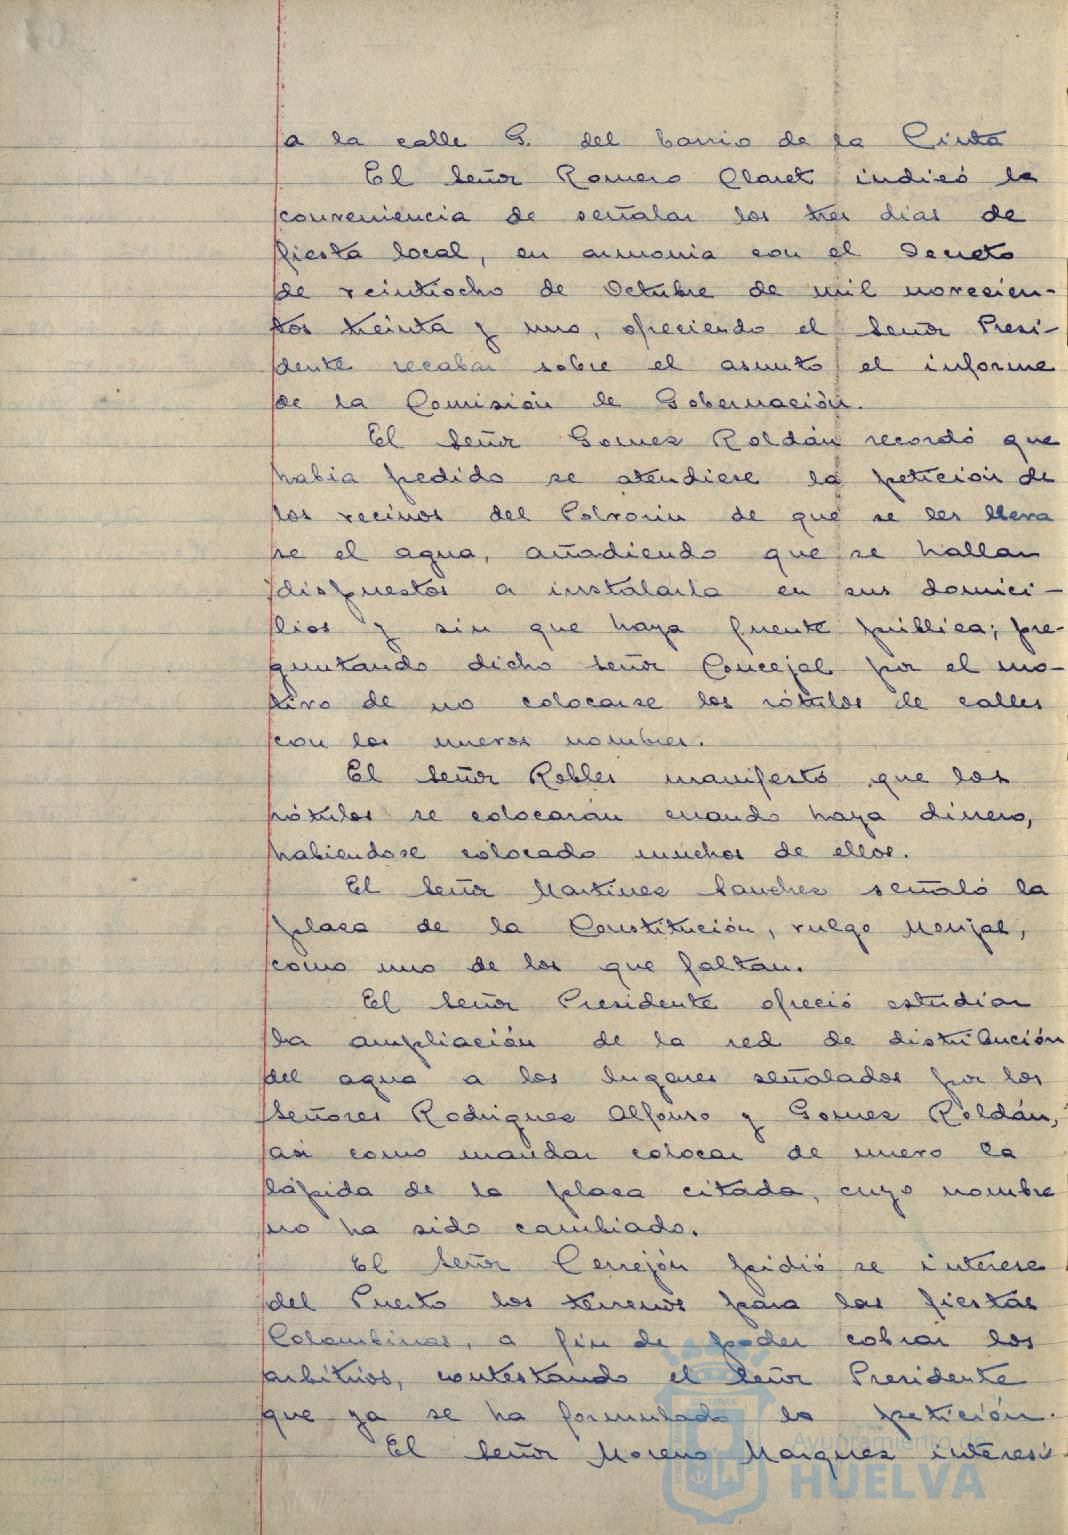 a la calle G. del barrio de la Cinta
El Señor Romero Claret indicó la
conveniencia de señalar los tres dias de
fiesta local, en armonia con el Decreto
de veintiocho de Octubre de mil novecien-
tos treinta y uno, ofreciendo el Señor Presi-
dente recabar sobre el asunto el informe
de la Comisión de Gobernación.
El Señor Gomez Roldán recordó que
habia pedido se atendiese la petición de
los vecinos del Polvorin de que se les lleva
se el agua, añadiendo que se hallan
dispuestos a instalarla en sus domici-
lios y sin que haya fuente pública; pre-
guntando dicho Señor Concejal por el mo-
tivo de no colocarse los rótulos de calles
con los nuevos nombres.
El Señor Robles manifestó que los
rótulos se colocarán cuando haya dinero,
habiendose colocado muchos de ellos.
El Señor Martinez Sanchez señaló la
plaza de la Constitución, vulgo Monjas,
como uno de los que faltan.
El Señor Presidente ofreció estudiar
la ampliación de la red de distribución
del agua a los lugares señalados por los
Señores Rodriguez Alfonso y Gomez Roldán,
asi como mandar colocar de nuevo la
lápida de la plaza citada, cuyo nombre
no ha sido cambiado.
El Señor Cerrejón pidió se interese
del Puerto los terrenos para las fiestas
Colombinas, a fin de poder cobrar los
arbitrios, contestando el Señor Presidente
que ya se ha formulado la petición.
El Señor Moreno Marquez interesó
Ayuntamiento de
HUELVA